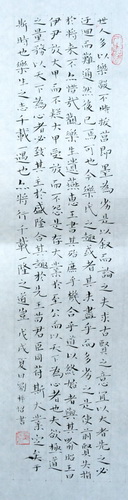 世人多以樂毅不時拔莒即墨為劣是以叙而論之夫求古賢之意宜以大者先之必
迂迴而難通然後已焉可也今樂氏之趣或者其未盡乎而多劣之是使前賢失指
於將來不亦惜哉觀樂生遺燕惠王書其殆庶乎機合乎道以終始者與其喻昭王曰
伊尹放大甲而不疑大甲受放而不怨是存大業於至公而以天下為心者也夫欲極道
之量務以天下為心者必致其主於盛隆合其趣於先王苟君臣同符斯大業定矣于
斯時也樂生之志千載一遇也亦將行千載一隆之道豈 戊戌夏日劉書